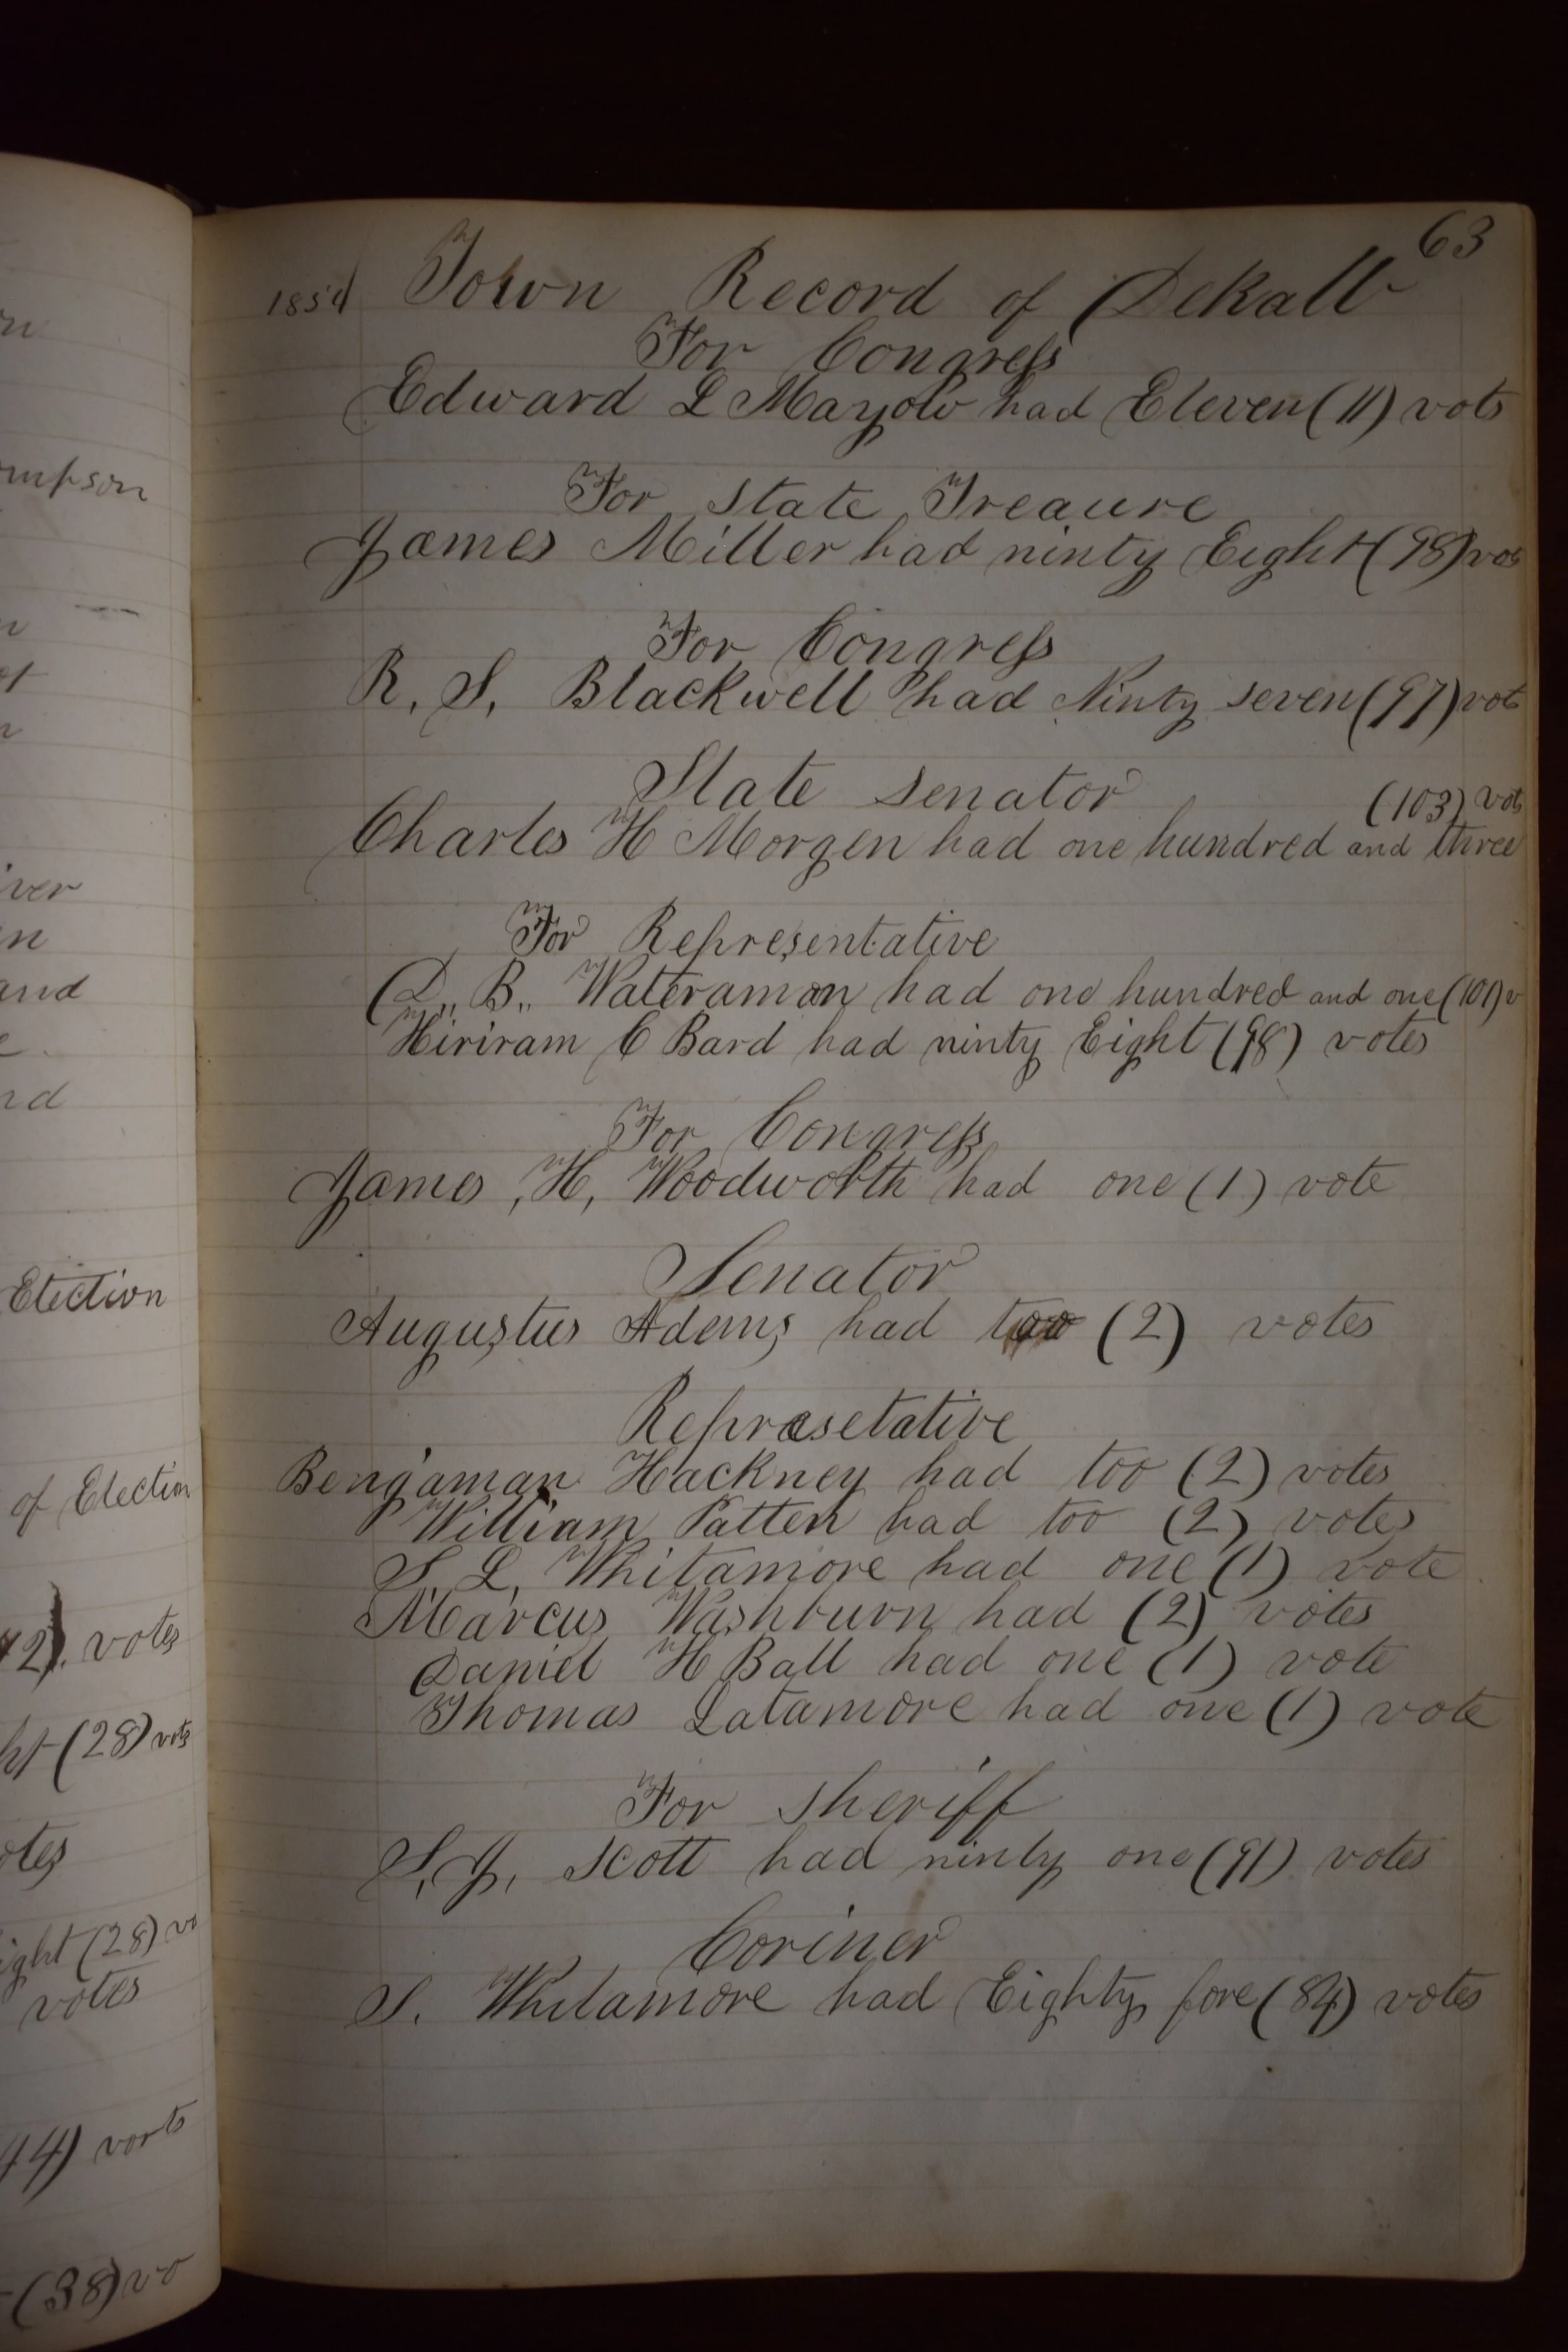 63
1854 Town Record of Dekalb
For Congress
Edward L Mayow had Eleven (11) vots
For State Treaure
James Miller had ninty Eight (98) vots
For Congress
R. S. Blackwell had Ninty seven (97) vots
State Senator
(103) vots
Charles H Morgen had one hundred and three
For Representative
D,, B,, Wateraman had one hundred and one (101) v
Hiriram C Bard had ninty Eight (98) votes
For Congress
James ,H, Woodworth had one (1) vote
Senator
Augustus Adems had too (2) votes
Represetative
Bengaman Hackney had too (2) votes
William Patten had too (2) votes
S. L. Whitamore had one (1) vote
Marcus Washburn had (2) votes
Daniel H Ball had one (1) vote
Thomas Latamore had one (1) vote
For Sheriff
S, J, Scott had ninty one (91) votes
Coriner
S. Whitamore had Eighty fore (84) votes
mpson
iver
and
Etection
of Election
42). votes
ht (28) vots
otes
ight (28) vo
votes
44) vorts
(38) vo